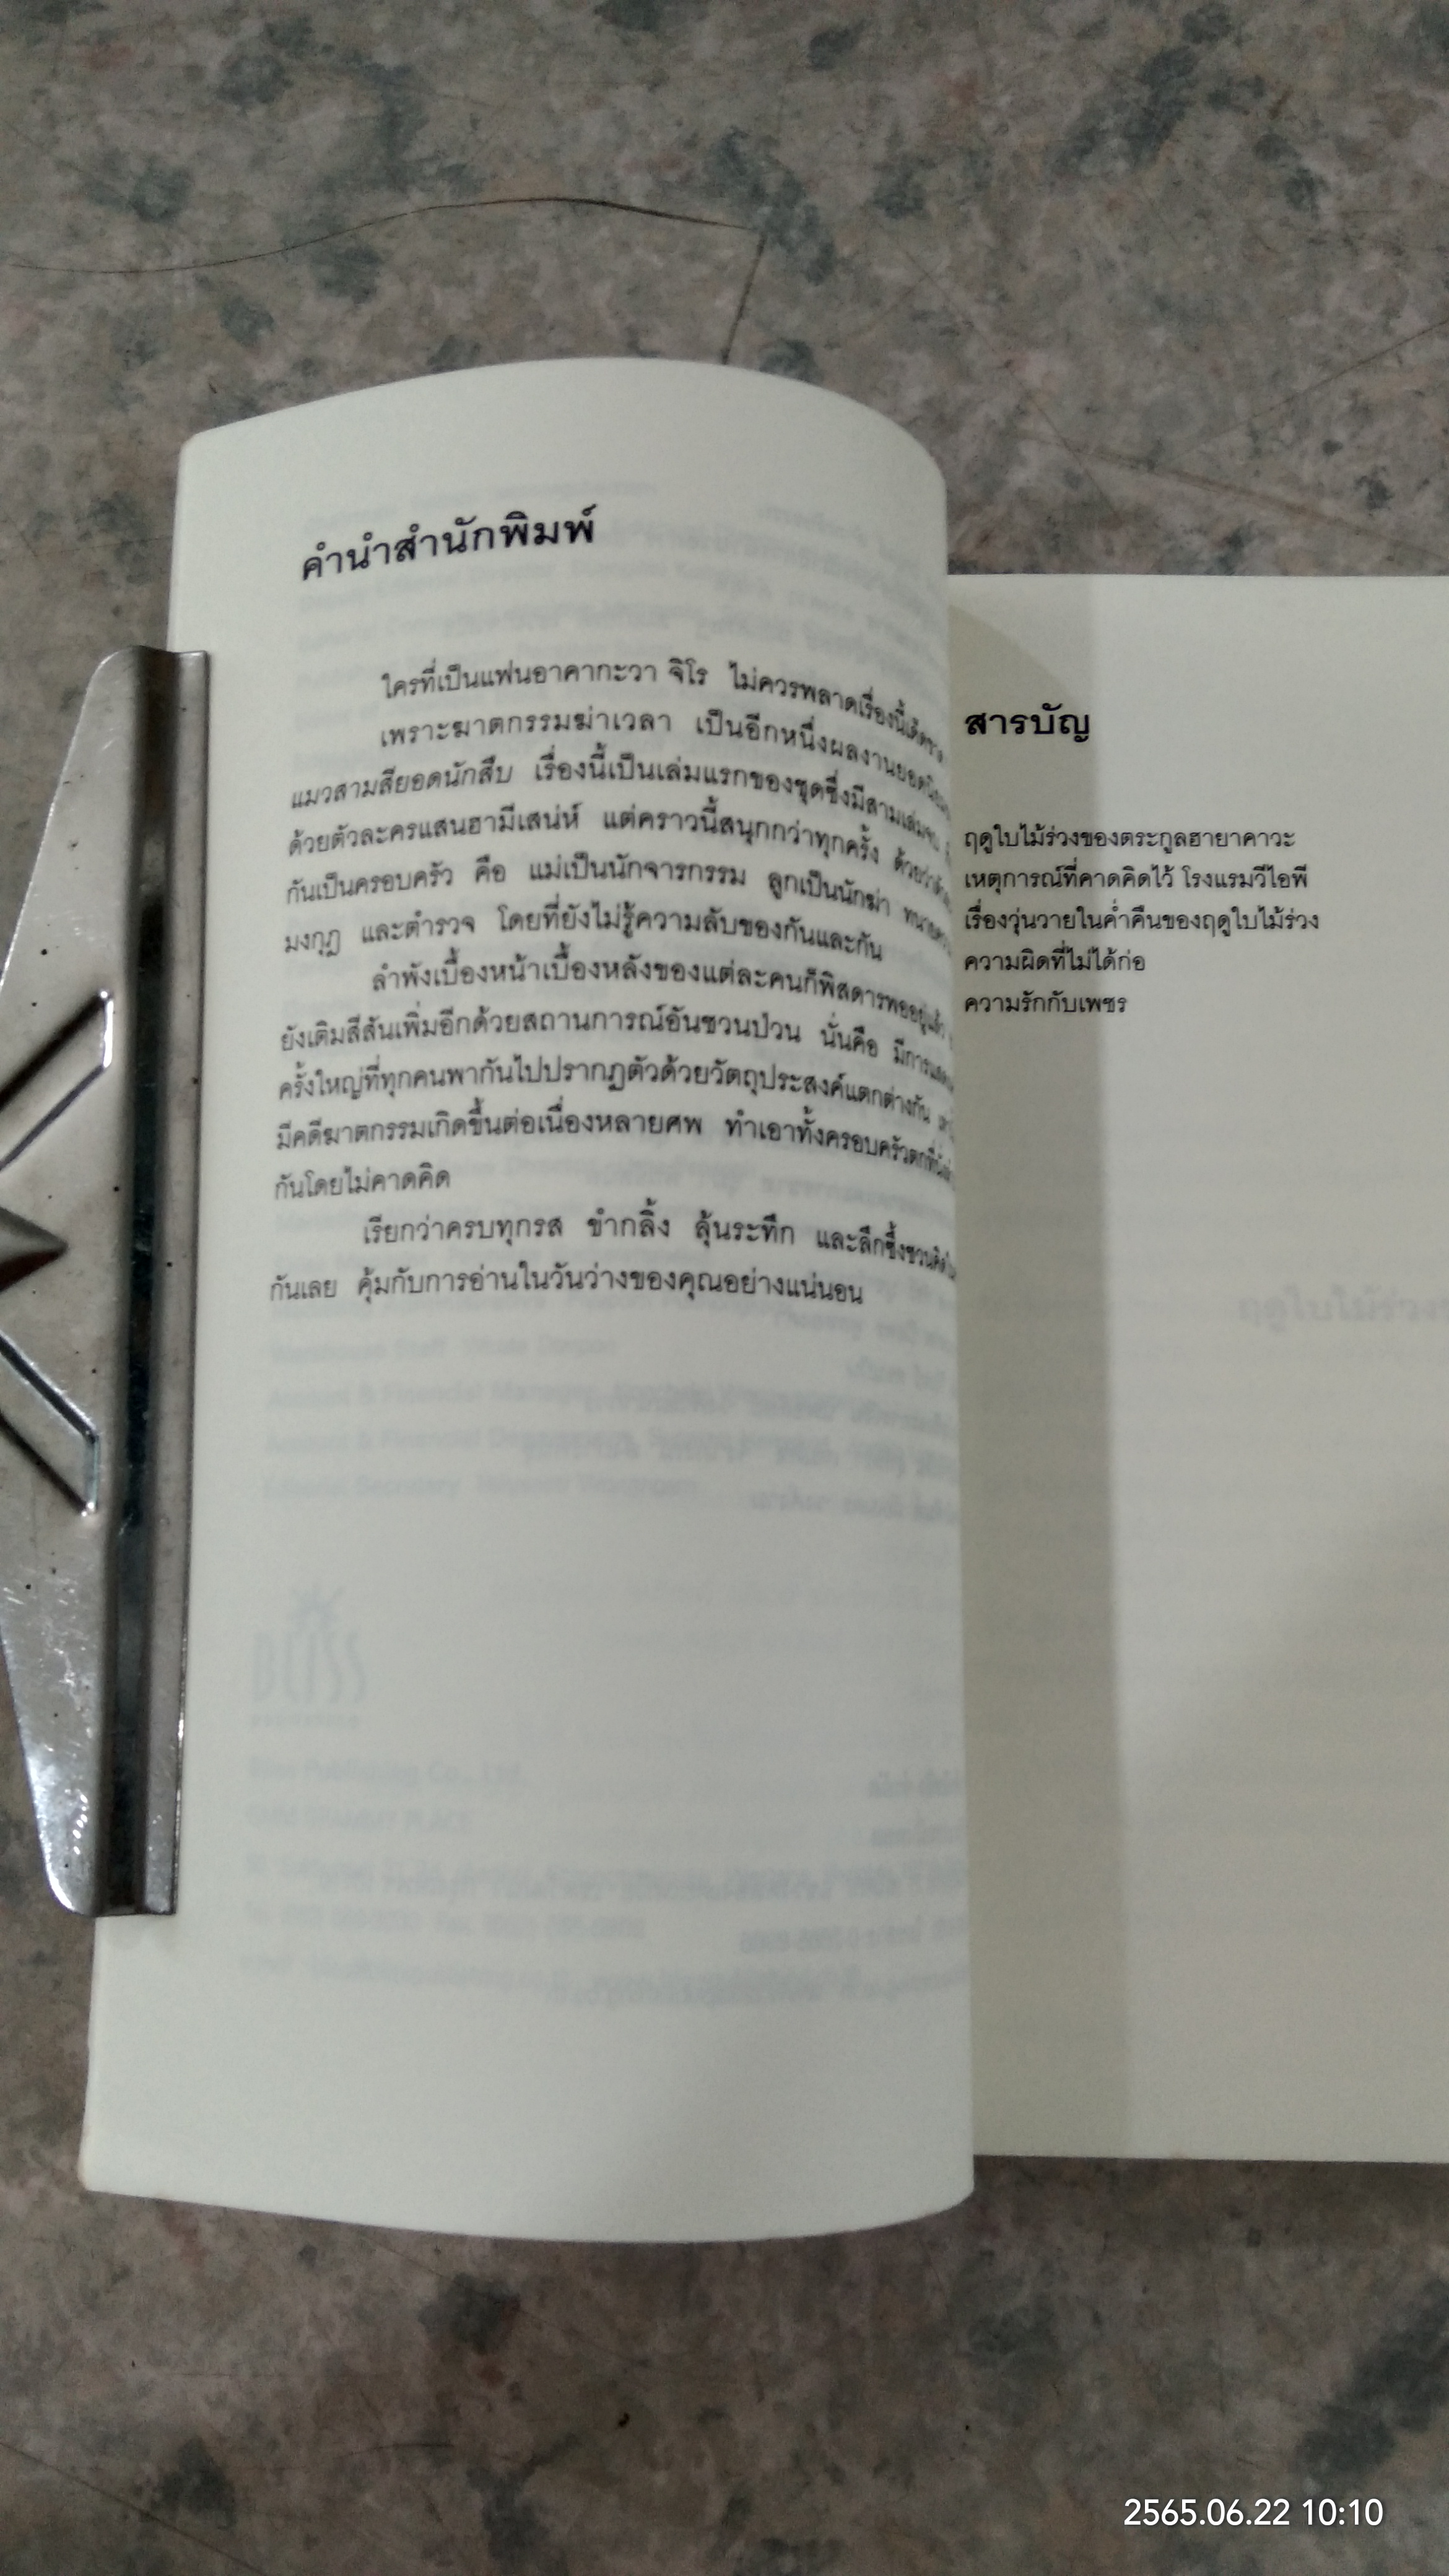 คำนำสำนักพิมพ์
ใครที่เป็นแฟนอาคากะวา จิโร ไม่ควรพลาดเรื่องนี้
เพราะฆาตกรรมฆ่าเวลา เป็นอีกหนึ่งผลงาน
แมวสามสียอดนักสืบ เรื่องนี้เป็นเล่มแรกของชุดซึ่งมีสามเล่มจบ
ด้วยตัวละครแสนฮามีเสน่ห์ แต่คราวนี้สนุกกว่าทุกครั้ง
กันเป็นครอบครัว คือ แม่เป็นนักจารกรรม ลูกเป็นนักฆ่า
มงกุฎ และตำรวจ โดยที่ยังไม่รู้ความลับของกันและกัน
ลำพังเบื้องหน้าเบื้องหลังของแต่ละคนก็พิสดารพออยู่แล้ว
ยังเติมสีสันเพิ่มอีกด้วยสถานการณ์อันชวนป่วน นั่นคือ
ครั้งใหญ่ที่ทุกคนพากันไปปรากฏตัวด้วยวัตถุประสงค์แตกต่างกัน
มีคดีฆาตกรรมเกิดขึ้นต่อเนื่องหลายศพ ทำเอาทั้งครอบครัว
กันโดยไม่คาดคิด
เรียกว่าครบทุกรส ขำกลิ้ง ลุ้นระทึก และลึกซึ้ง
กันเลย คุ้มกับการอ่านในวันว่างของคุณอย่างแน่นอน
สารบัญ
ฤดูใบไม้ร่วงของตระกูลฮายาคาวะ
เหตุการณ์ที่คาดคิดไว้ โรงแรมวีไอพี
เรื่องวุ่นวายในค่ำคืนของฤดูใบไม้ร่วง
ความผิดที่ไม่ได้ก่อ
ความรักกับเพชร
2565.06.22 10:10